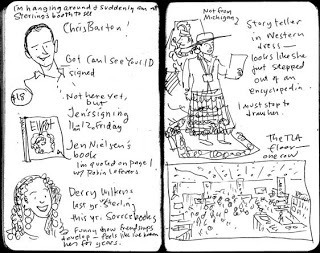 I'm hanging around & suddenly am @
Sterling's booth to see
Chris Barton!
Got Can I see Your ID
signed
$18
Not here yet,
but
Jen's signing
Friday
Jen Nielsen's
book
I'm quoted on page 1
w/ Robin Lefevers
Derry Wilkens
last yr. Sterling
this yr. Sourcebooks
Funny how friendships
develop – feels like I've known
her for years.
Not from
Michigan
Storyteller
in Western
dress –
looks like she
just stepped
out of an
encyclopedia.
I must stop to
draw her.
The TLA
floor –
one row